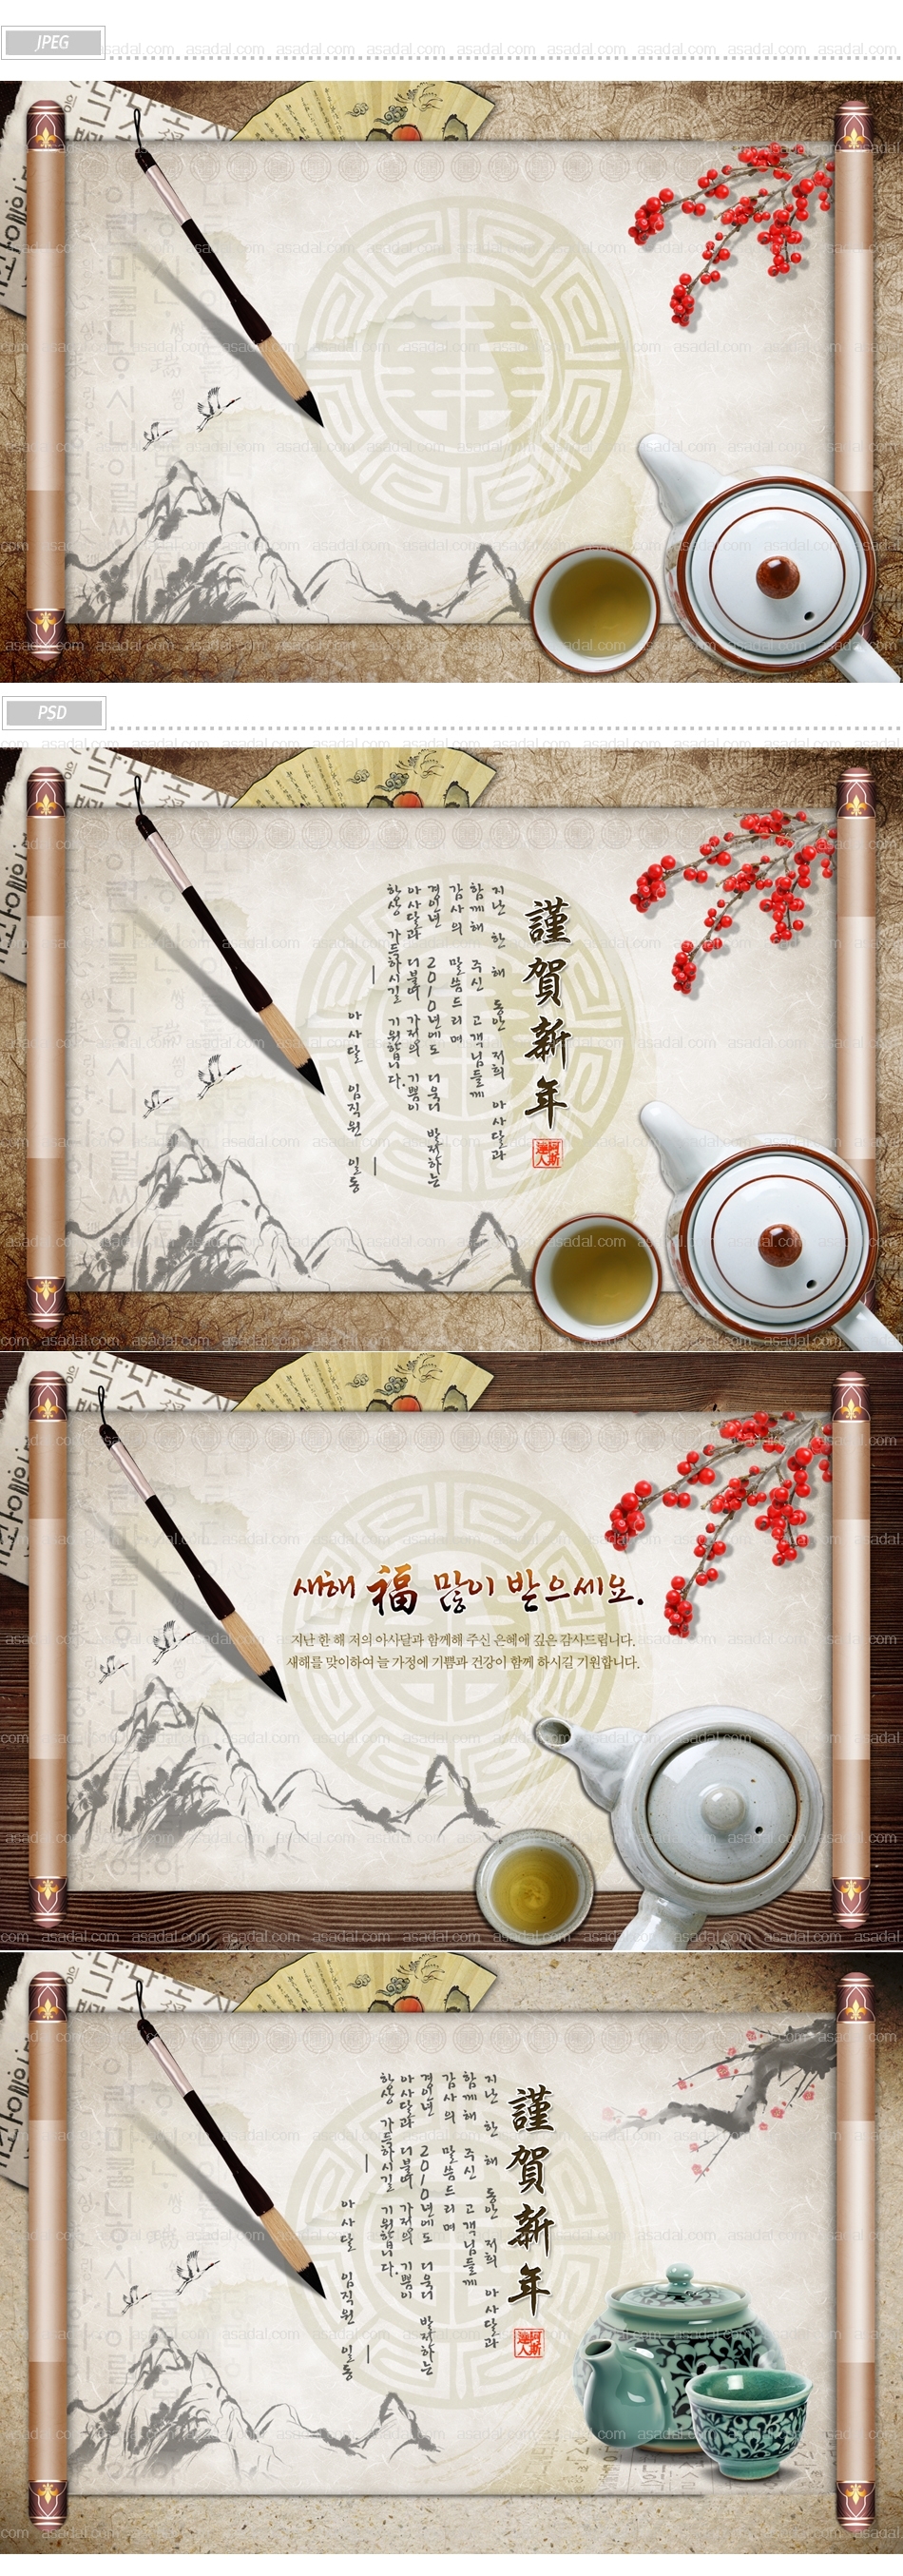 JPEG
PSD
謹賀新年
阿斯達人
지난 한 해 동안 저희 아사달과
함께해 주신 고객님들께
감사의 말씀드리며
경인년 2010년에도 더욱더 발전하는
아사달과 더불어 가정의 기쁨이
항상 가득하시길 기원합니다.
아사달 임직원 일동
새해 福 많이 받으세요.
지난 한 해 저의 아사달과 함께해 주신 은혜에 깊은 감사드립니다.
새해를 맞이하여 늘 가정에 기쁨과 건강이 함께 하시길 기원합니다.
謹賀新年
阿斯達人
지난 한 해 동안 저희 아사달과
함께해 주신 고객님들께
감사의 말씀드리며
경인년 2010년에도 더욱더 발전하는
아사달과 더불어 가정의 기쁨이
항상 가득하시길 기원합니다.
아사달 임직원 일동
asadal.com